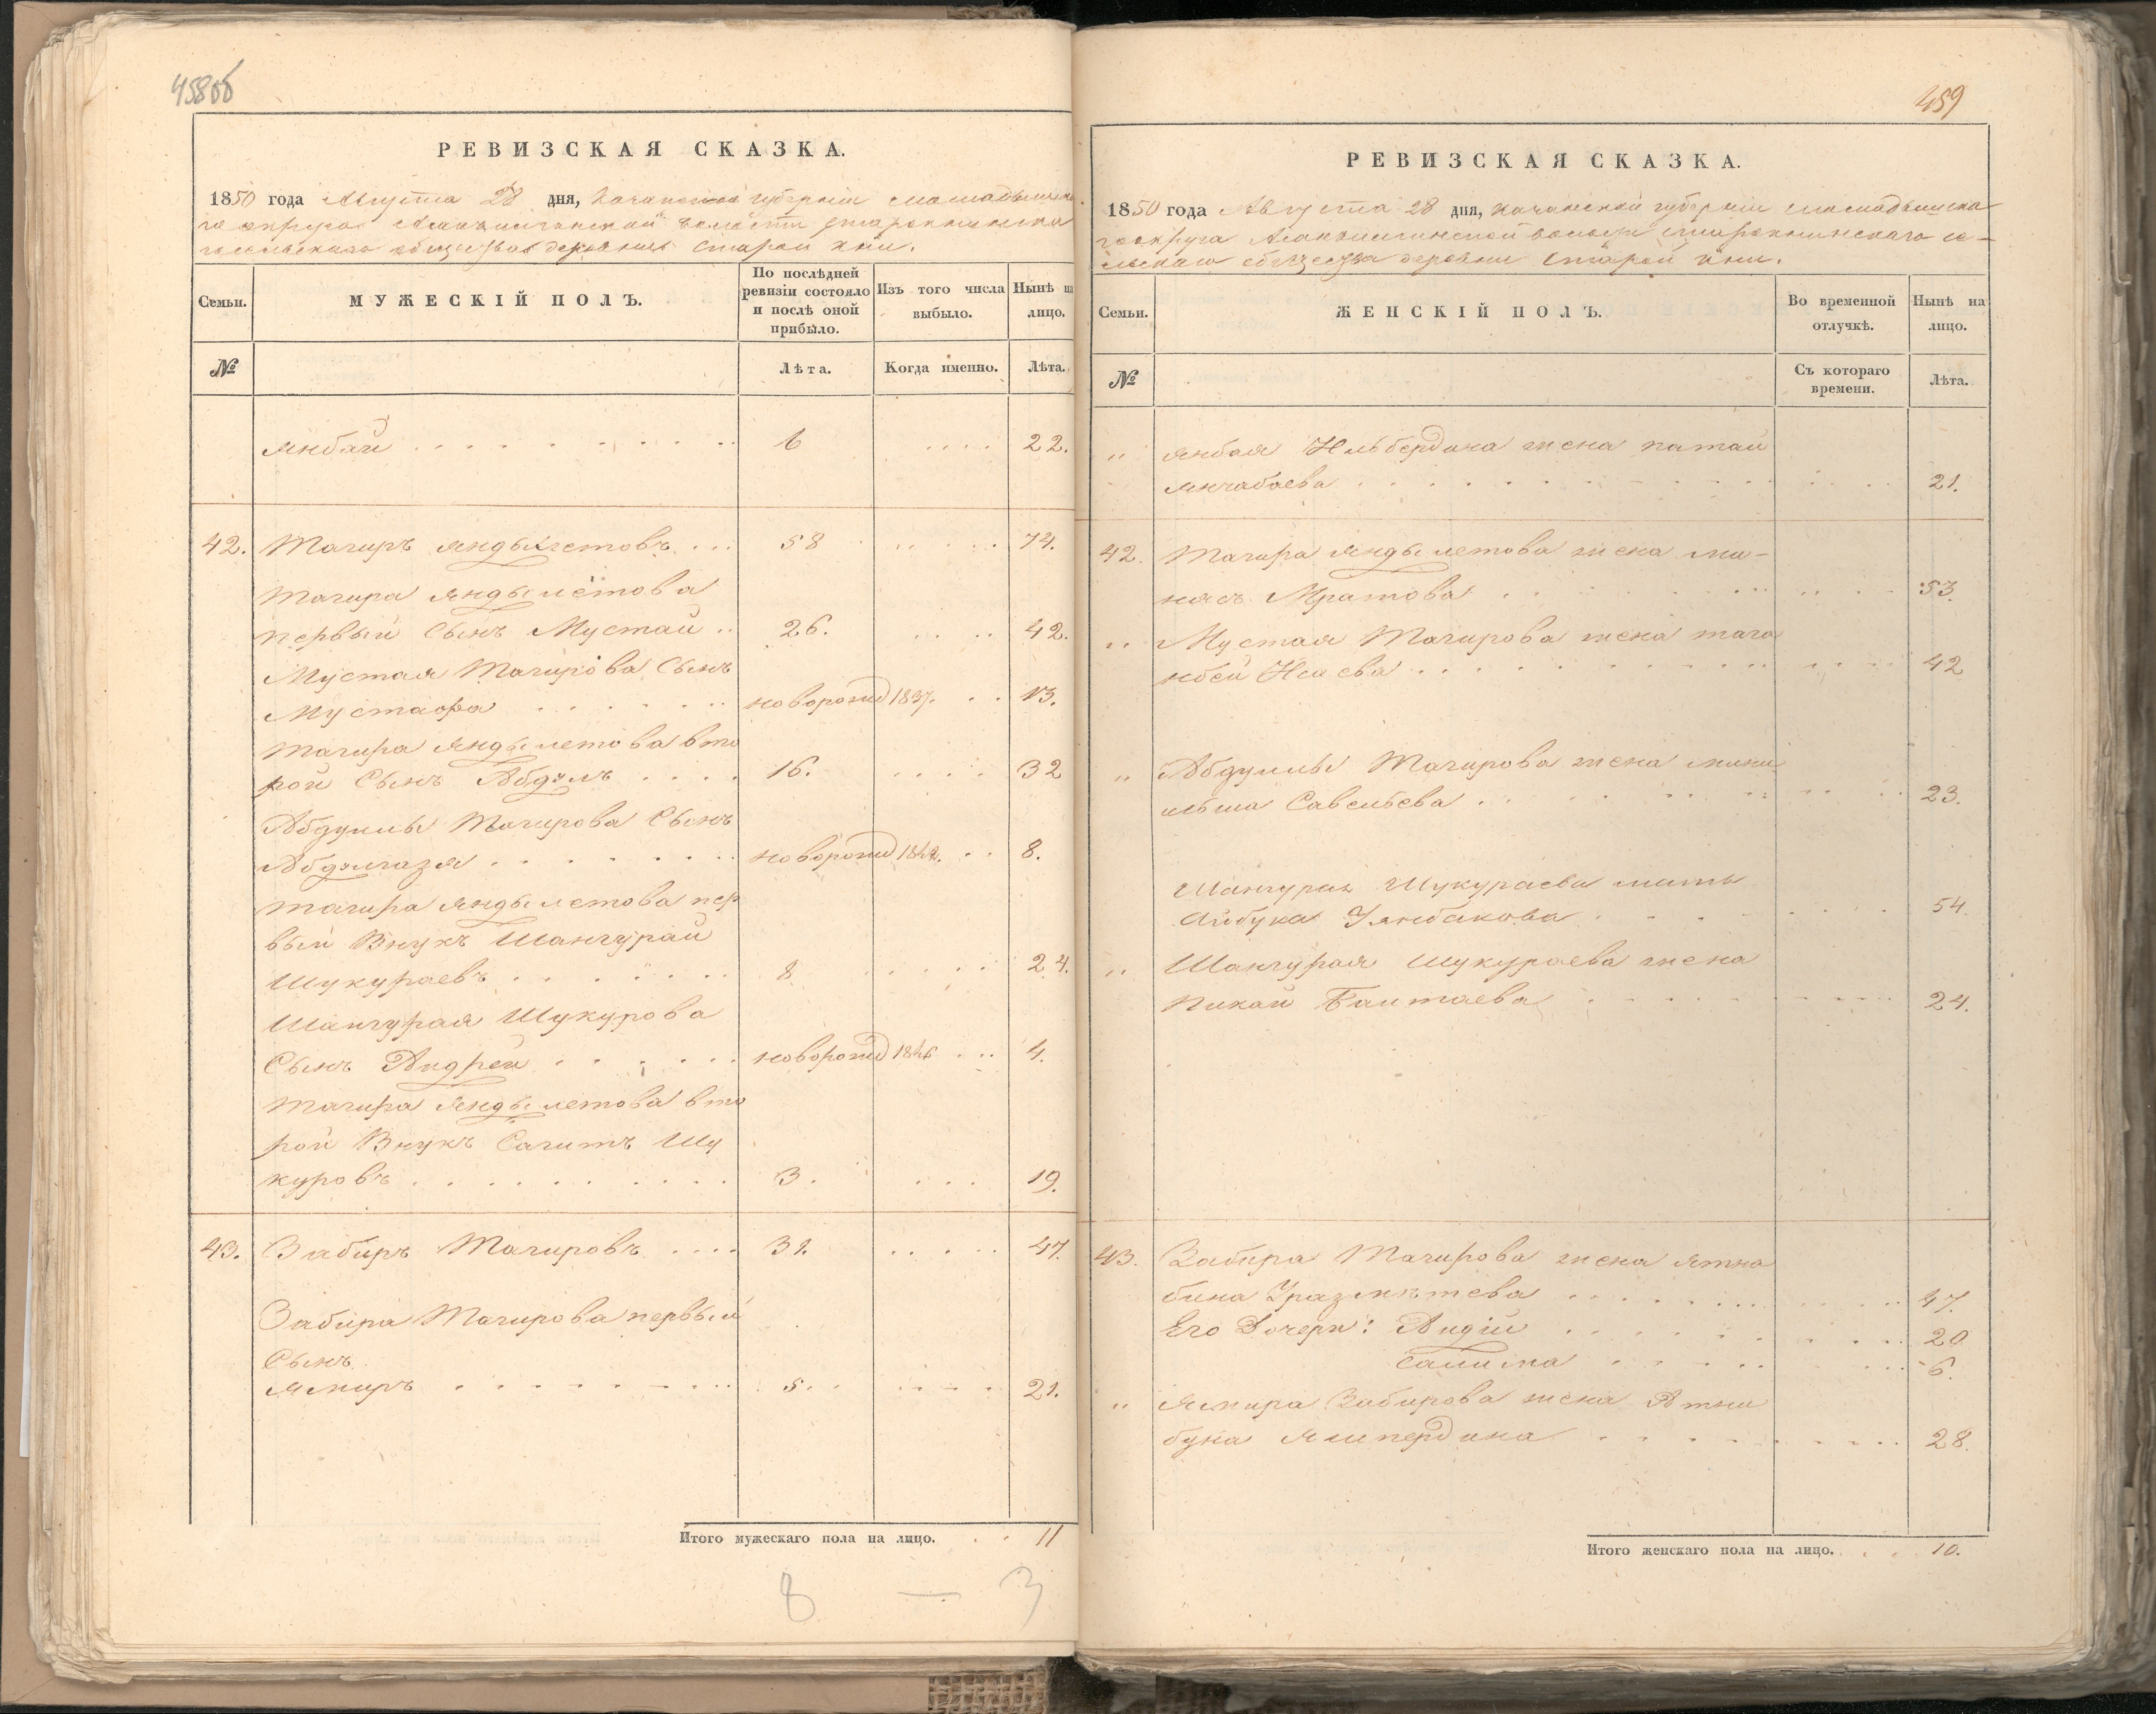 458об
РЕВИЗСКАЯ СКАЗКА.
1850 года Августа 28 дня, Казанской губерніи Мамадышска
го округа волости Старокнинска
го сельскаго общества деревни Старой Кни.
Семьи.
МУЖЕСКІЙ ПОЛЪ.
По послѣдней ревизіи состояло и послѣ оной прибыло.
Изъ того числа выбыло.
Нынѣ на лицо.
№
Лѣта.
Когда именно.
Лѣта.
Янбай 6 22.
42. Тагиръ Яндылетовъ 58 74.
Тагира Яндылетова
первый Сынъ Мустай 26. 42.
Мустая Тагирова Сынъ
Мустафа новорожд 1837. 13.
Тагира Яндылетова вто
рой Сынъ Абдулъ 16. 32
Абдуллы Тагирова Сынъ
Абдулгазя новорожд 1842. 8.
Тагира Яндылетова пер
вый Внукъ Шангурай
Шукураевъ 8 24.
Шангурая Шукурова
Сынъ Андрей новорожд 1846 4.
Тагира Яндылетова вто
рой Внукъ Сагитъ Шу
куровъ 3. 19.
43. Забиръ Тагировъ 31. 47.
Забира Тагирова первый
Сынъ
Ямиръ 5. 21.
Итого мужескаго пола на лицо. 11
8 — 3
459
РЕВИЗСКАЯ СКАЗКА.
1850 года Августа 28 дня, Казанской губерніи Мамадышска
го округа волости Старокнинскаго се-
льскаго общества деревни Старой Кни.
Семьи.
ЖЕНСКІЙ ПОЛЪ.
Во временной отлучкѣ.
Нынѣ на лицо.
№
Съ котораго времени.
Лѣта.
" Янбая Ильбердина жена Патай
Янчабаева 21.
42. Тагира Яндылетова жена Ми-
нясъ Мратова 53.
" Мустая Тагирова жена Таго
нбей Исаева 42
" Абдуллы Тагирова жена Мини
льша Савельева 23.
Шангурая Шукураева мать
Айбука Уянбакова 54.
" Шангурая Шукураева жена
Пикай Бактаева 24.
43. Забира Тагирова жена Ятна
бина Уразметева 47.
Его Дочери: Андій 20
Салима 6.
" Ямира Забирова жена Атни
бука Ямпердина 28.
Итого женскаго пола на лицо. 10.